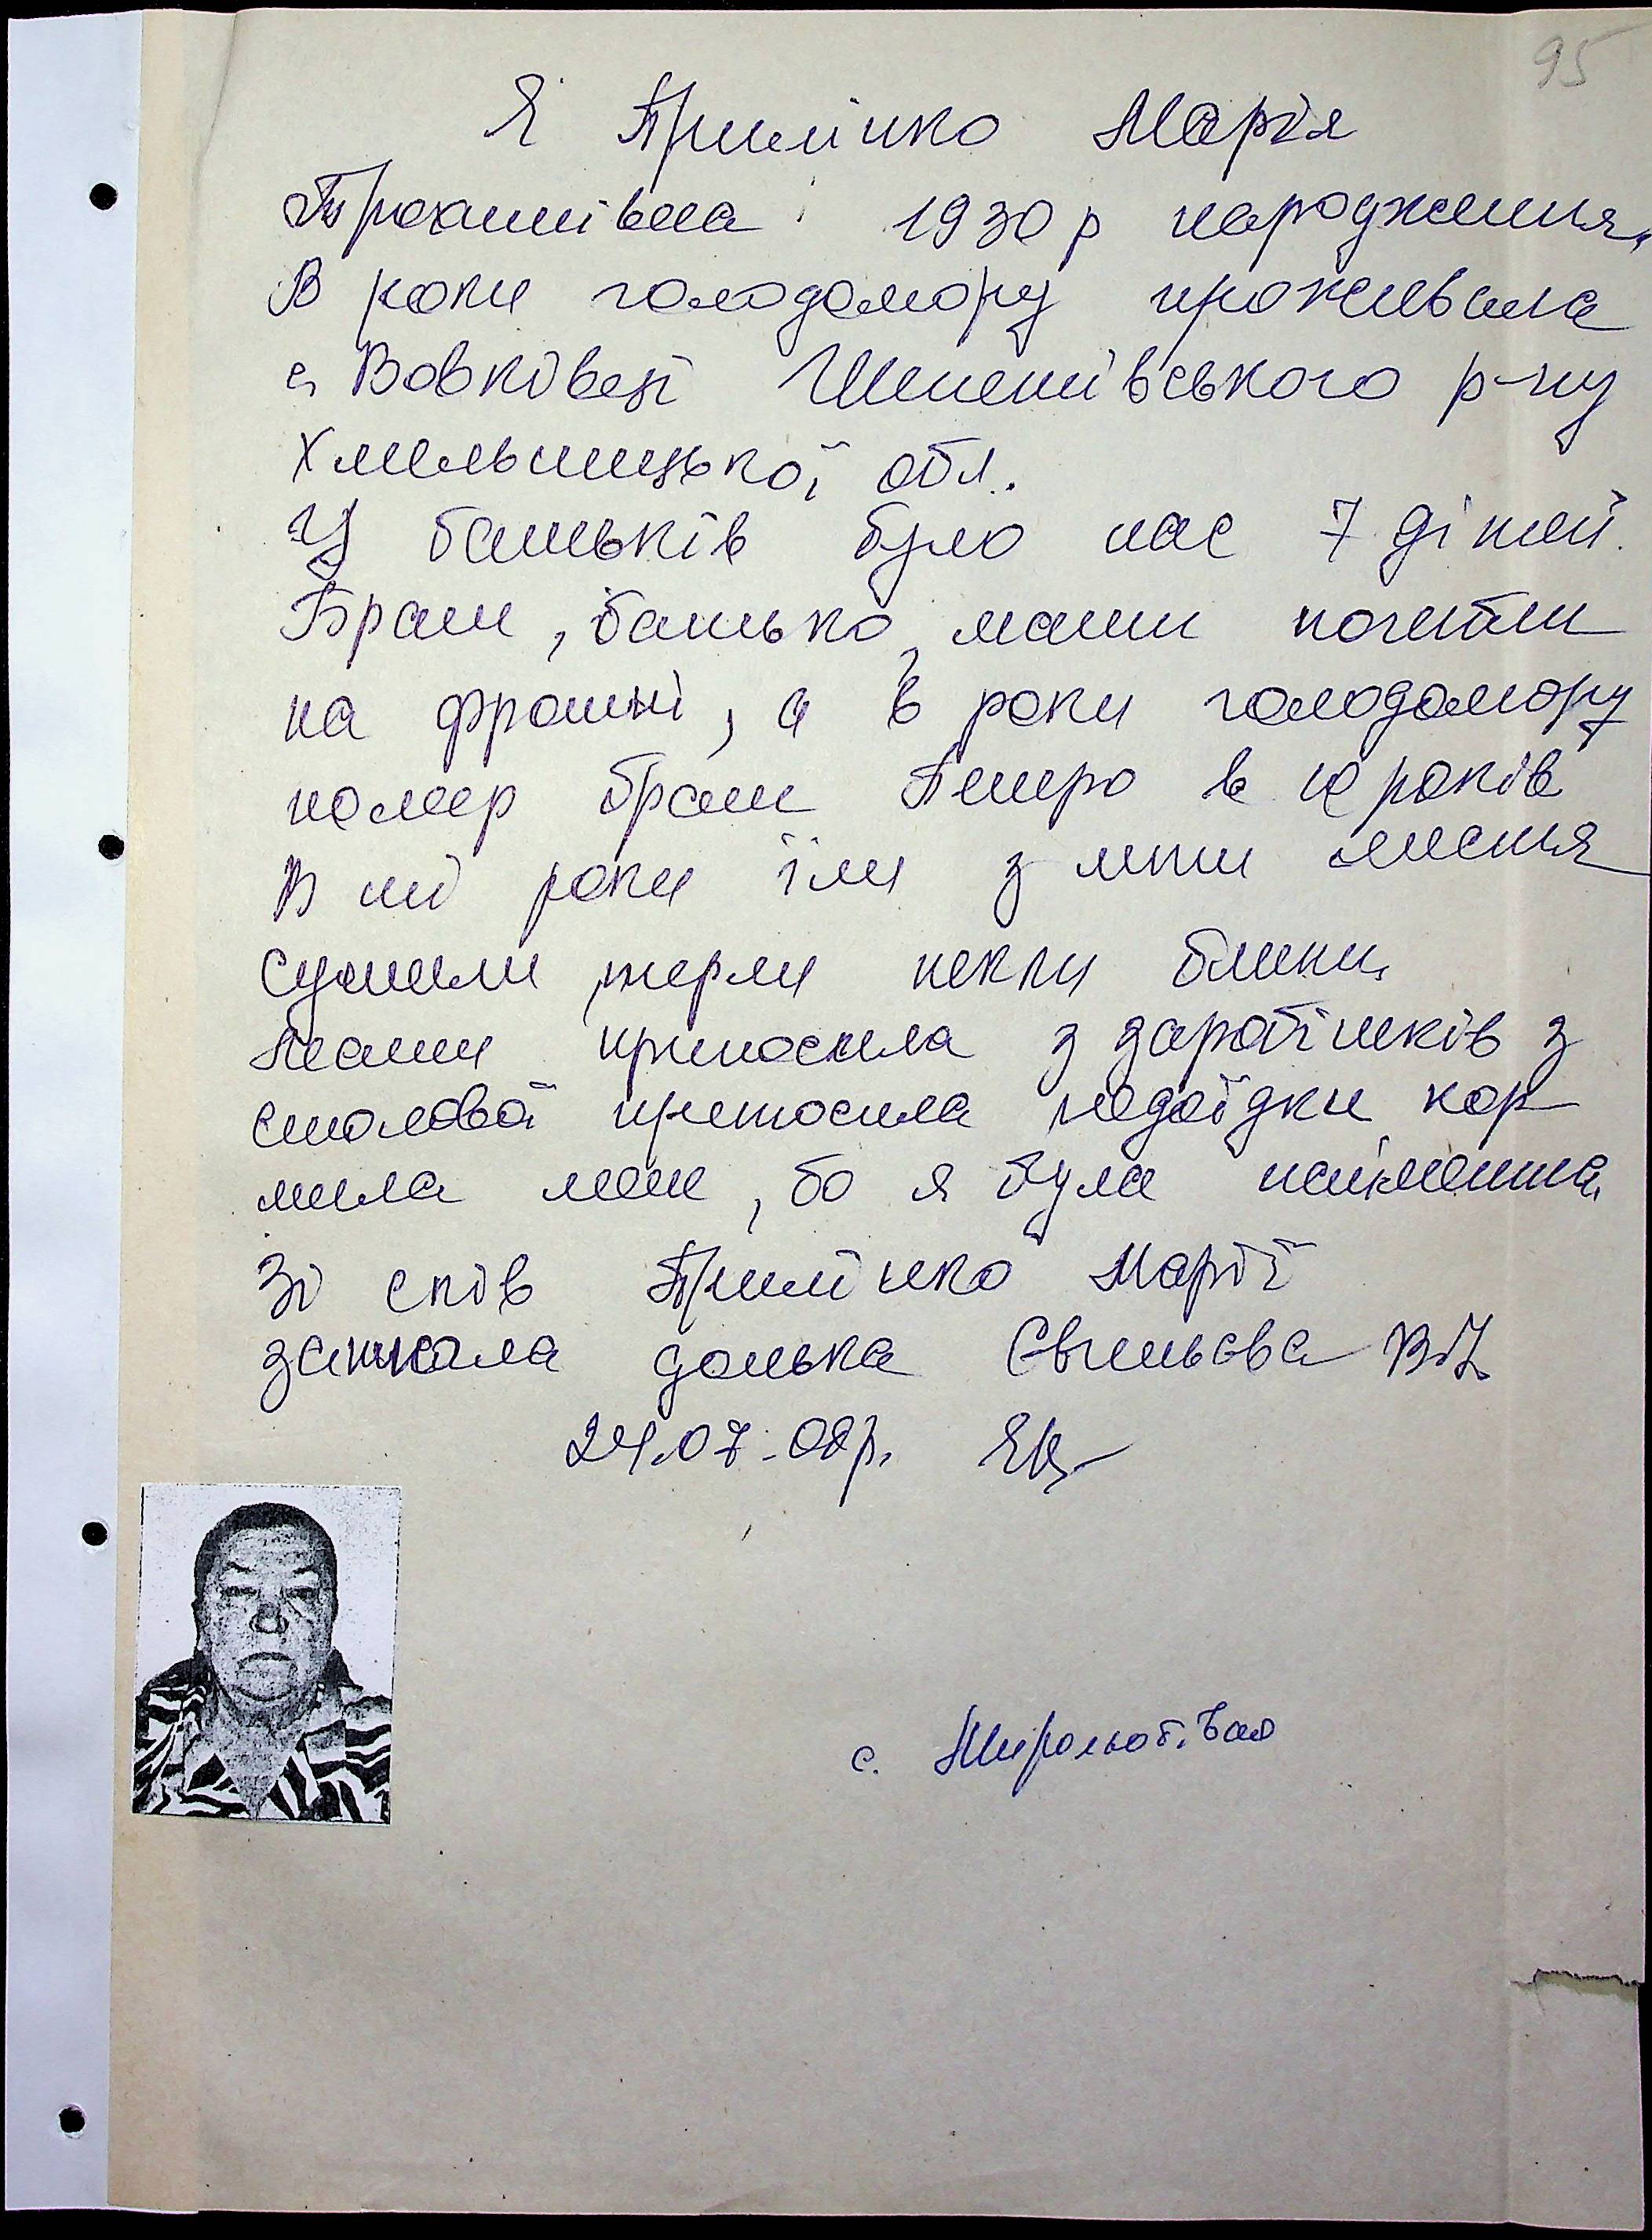 95
Я Приліпко Марія
Трохимівна 1930 р народження.
В роки голодомору проживала
с. Вовківці Шепетівського р-ну
Хмельницької обл.
У батьків було нас 7 дітей.
Брати, батько, мати погибли
на фронті, а в роки голодомору
помер брат Петро в 10 років
В ті роки їли з липи листя
сушили, терли пекли блини.
Мати приносила з заробітків з
столової приносила недоїдки кор
мила мене, бо я була найменша.
Зі слів Приліпко Марії
записала донька Євтеньєва В.І.
24.07.08р.
с. Миролюбівка